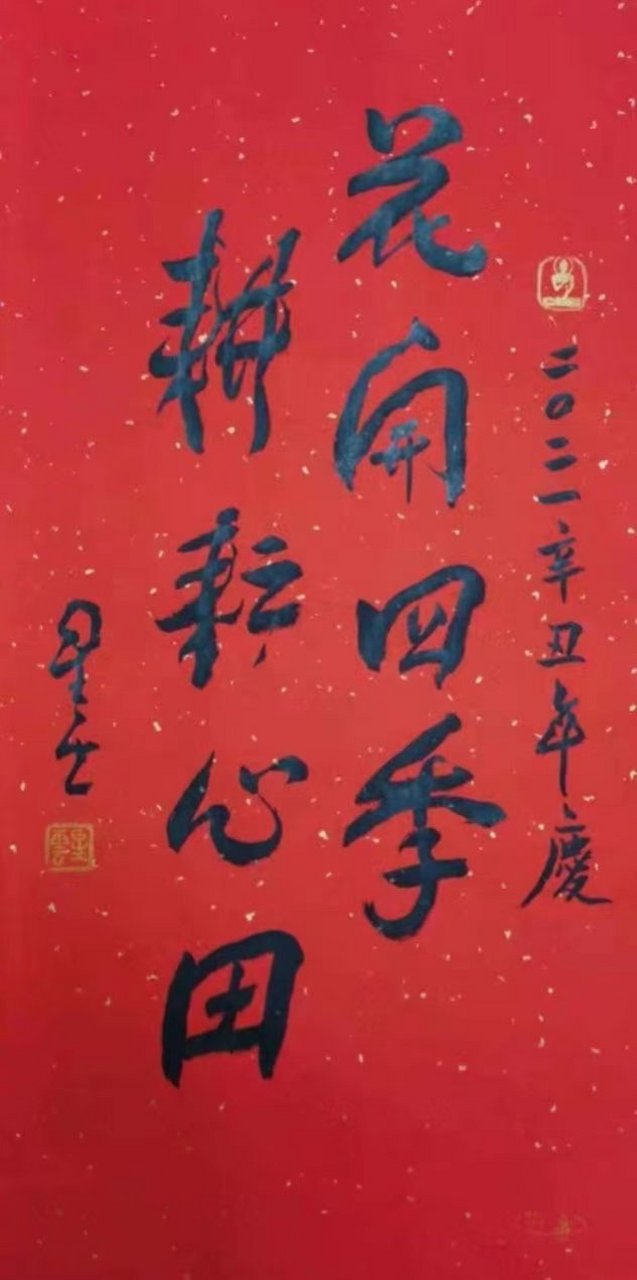 二〇二一辛丑年慶
花開四季
耕耘心田
星雲
星雲